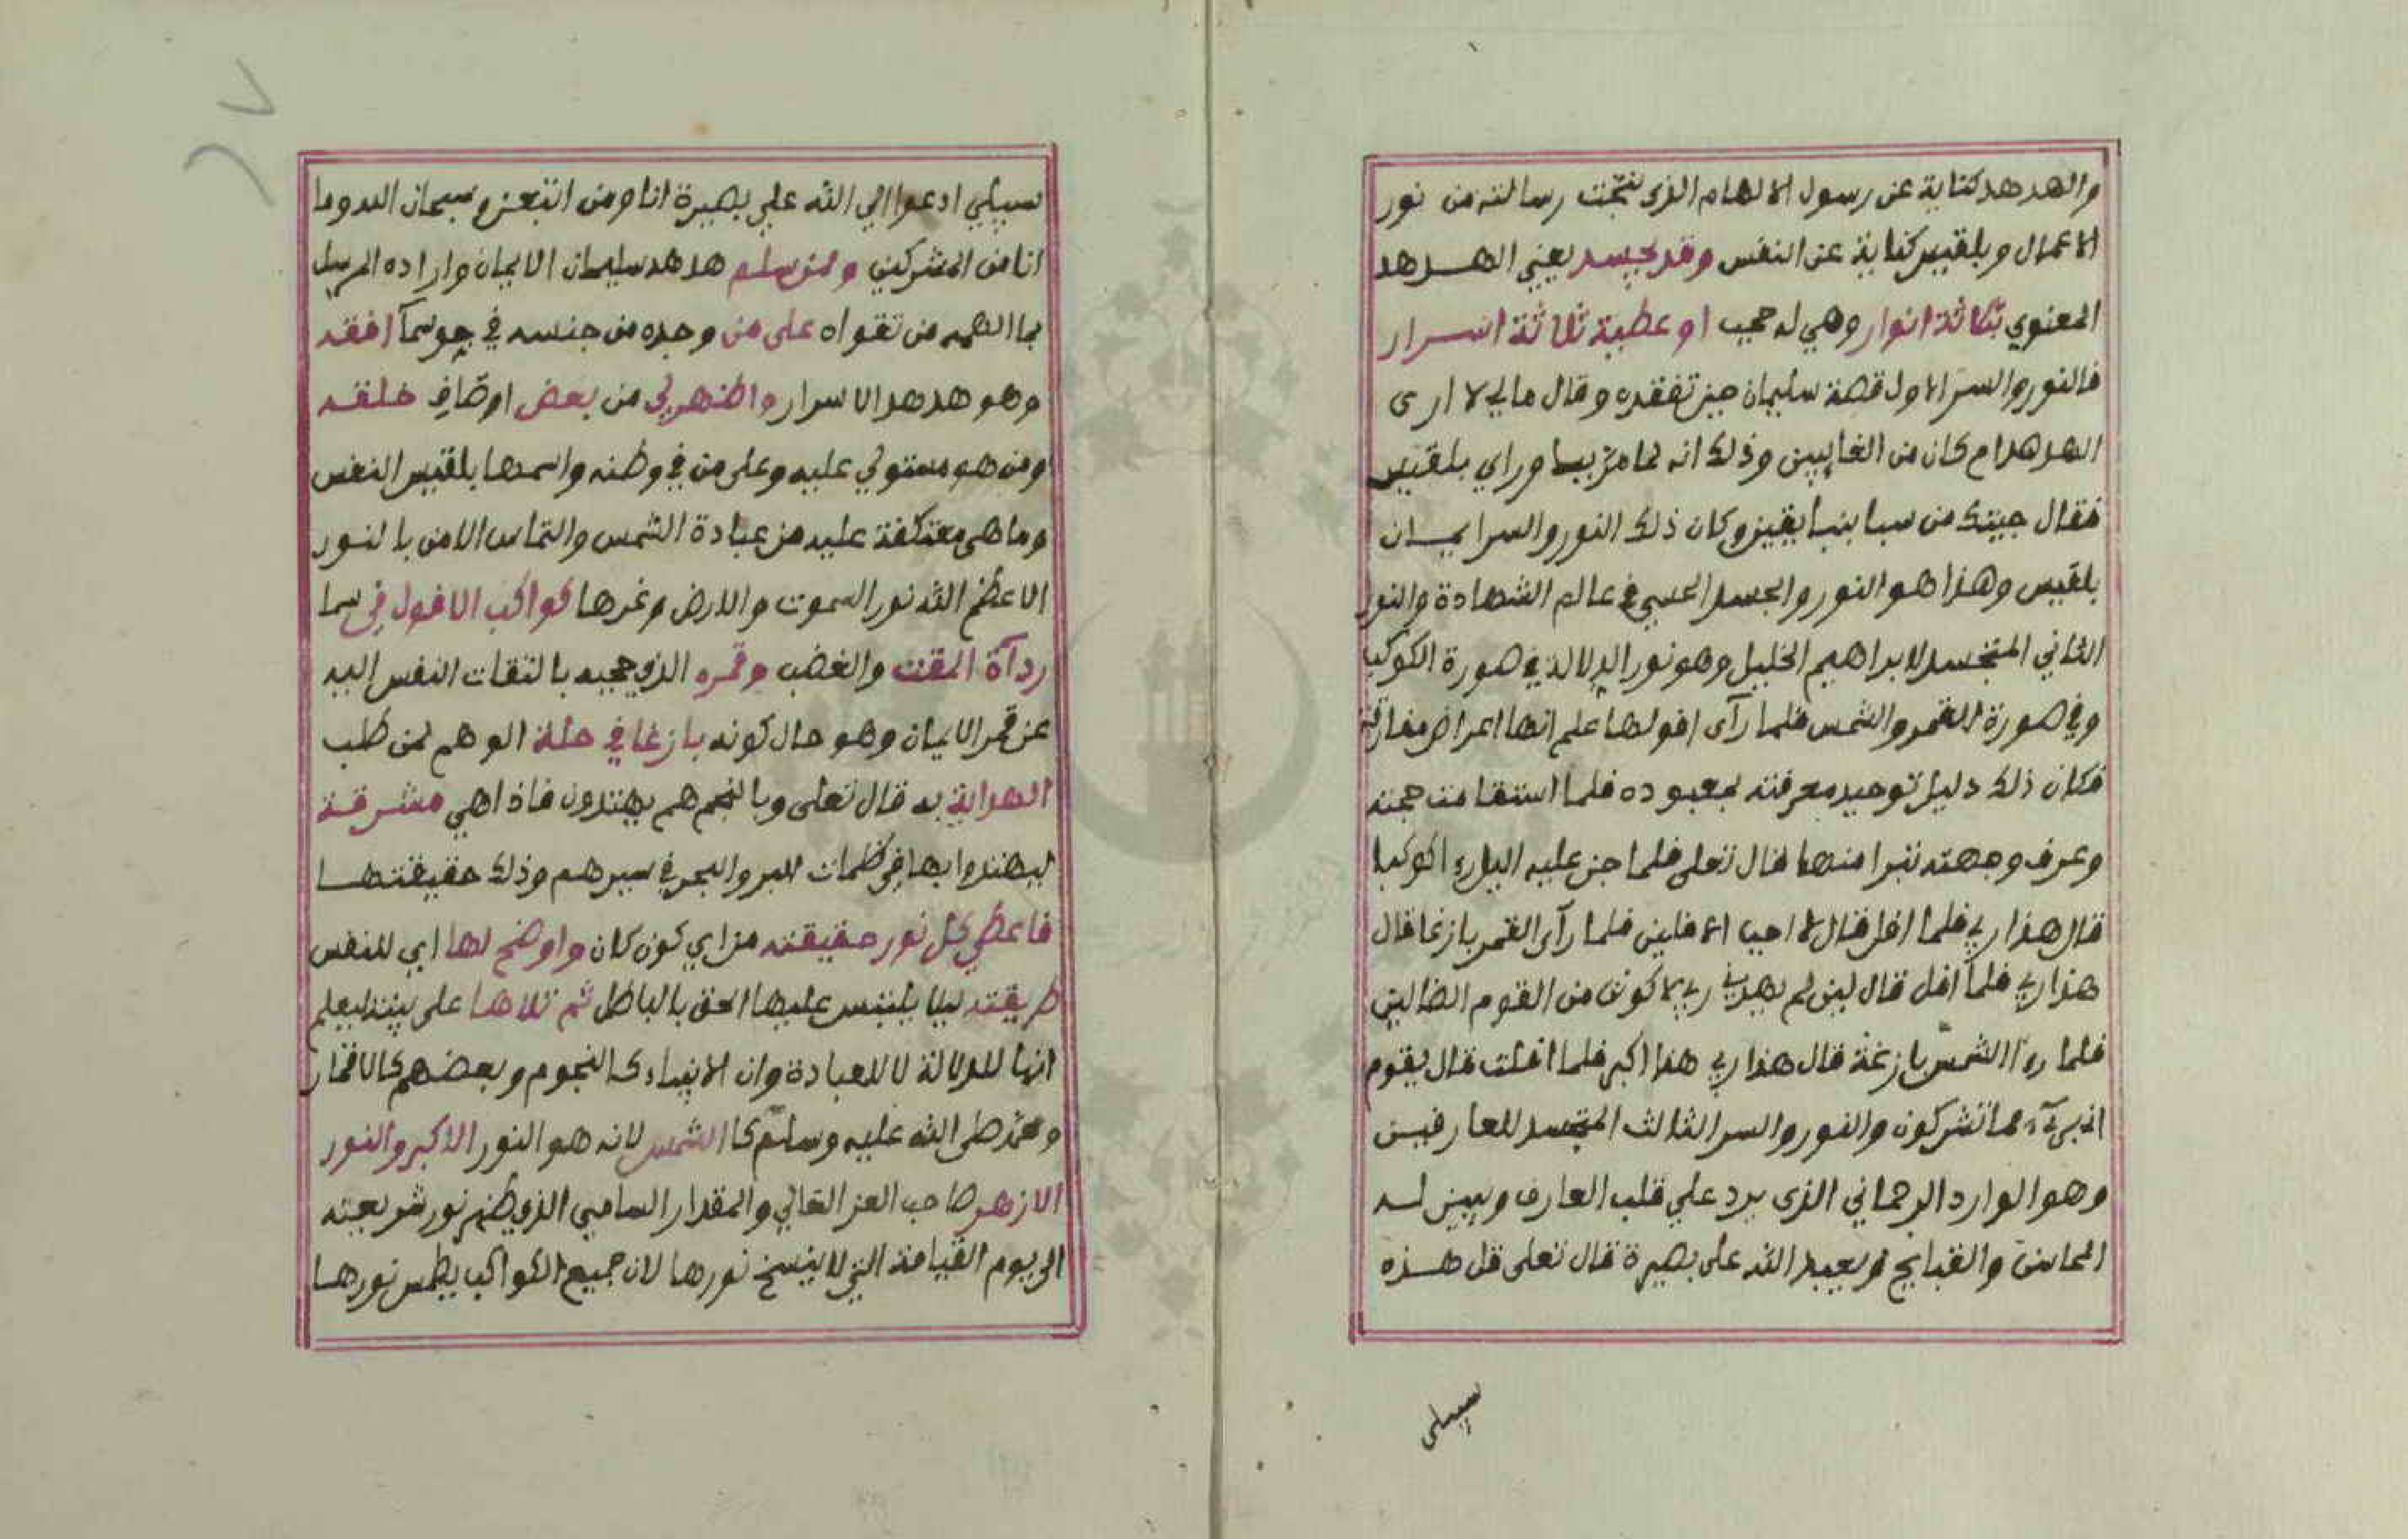 والهدهد كناية عن رسول الالهام الذى نتجت رسالته من نور
الاعمال وبلقيس كناية عن النفس وقد تجسد يعني الهدهد
المعنوي بثلاثة انوار وهي له حجب او عطية ثلاثة اسرار
فالنور والسر الاول قصة سليمان حين تفقده وقال مالي لا ارى
الهدهد ام كان من الغايبين وذلك انه لما مر بسبا وراي بلقيس
فقال جيتك من سبا بنبا يقين وكان ذلك النور والسر ايمان
بلقيس وهذا هو النور والجسد الحسي في عالم الشهادة والنور
الثاني المتجسد لابراهيم الخليل وهو نور الدلالة في صورة الكوكب
وفي صورة القمر والشمس فلما رآى افولها علم انها اعراض مفارقة
فكان ذلك دليل توحيد معرفته بمعبوده فلما استقامت حجته
وعرف وجهته تبرا منها قال تعلى فلما جن عليه اليل رء اكوكبا
قال هذا ربي فلما افل قال لا احب الافلين فلما رآى القمر بازغا قال
هذا ربي فلما افل قال لين لم يهدني ربي لاكونن من القوم الضالين
فلما رء االشمس بازغة قال هذا ربي هذا اكبر فلما افلت قال يقوم
اني برىٓء مما تشركون والنور والسر الثالث المتجسد للعارفين
وهو الوارد الرحماني الذى يرد علي قلب العارف ويبين له
المحاسن والقبايح ويعبد الله على بصيرة قال تعلى قل هذه
سبيلى
سبيلي ادعوا الي الله علي بصيرة انا ومن اتبعن وسبحان الله وما
انا من المشركين ومن سلم هدهد سليمان الايمان واراده المرسل
بما الهمه من تقواه على من وجده من جنسه في جو سمآ افقه
وهو هدهد الاسرار واظهر لي من بعض اوصاف خلقه
ومن هو مستولي عليه وعلى من في وطنه واسمها بلقيس النفس
وما هى معتكفة عليه من عبادة الشمس والتماس الامن بالنور
الاعظم الله نور السموت والارض وغرها كواكب الافول في سما
ردآة المقت والغضب وقمره الذي حجبه بالتفات النفس اليه
عن قمر الايمان وهو حال كونه بازغا في حلة الوهم لمن طلب
الهداية به قال تعلى وبالنجم هم يهتدون فاذا هي مشرقة
ليهتدوا بها في ظلمات البر والبحر في سيرهم وذلك حقيقتها
فاعطي كل نور حقيقته من اي كون كان واوضح لها اي للنفس
طريقته ليلا يلتبس عليها الحق بالباطل ثم تلاها على بينة ليعلم
انها للدلالة لا للعبادة وان الانبياء كالنجوم وبعضهم كالاقمار
ومحمد صلى الله عليه وسلم كا الشمس لانه هو النور الاكبر والنور
الازهر صاحب العز العالي والمقدار السامي الذي ظهر نور شريعته
الى يوم القيامة التي لا ينسخ نورها لان جميع الكواكب يطمس نورها